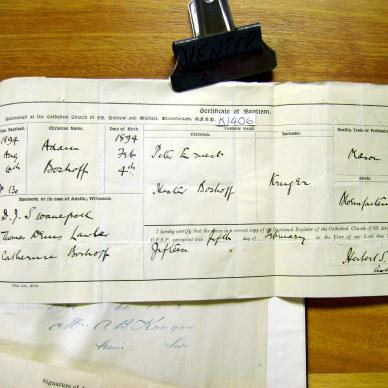 VENTER
Certificate of Baptism.
Solemnized at the Cathedral Church of SS. Andrew and Michael, Bloemfontein, O.F.S.D. K1406
When Baptized. Christian Name. Date of Birth PARENTS' NAME. Quality, Trade or Profession
Christian. Surname.
1894 Adam 1894 Peter Ernest Mason
Aug Boshoff Feb Kruger
4th Hester Boshoff Abode.
P 120 Bloemfontein
Sponsors, or (in case of Adults), Witnesses.
D. J. Swanepoel
I hereby certify that the above is a correct copy of the Baptismal Register of the Cathedral Church of SS. And
Thomas Denis Lawls O.F.S.P. extracted this fifth day of February in the Year of our Lord One
Catherine Boshoff fifteen Herbert S.
A B Kruger
Signature of